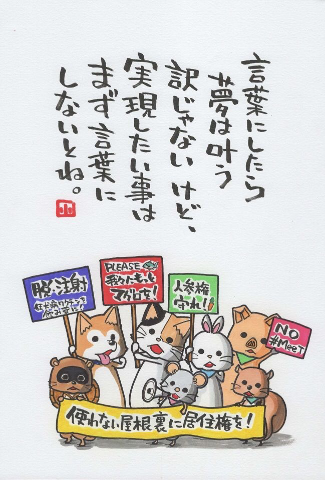 言葉にしたら
夢は叶う
訳じゃないけど、
実現したい事は
まず言葉に
しないとね。
脱・注射
PLEASE
我々にもっと
マグロを!
人参権
守れ!!
NO
#MeeT
使わない屋根裏に居住権を!